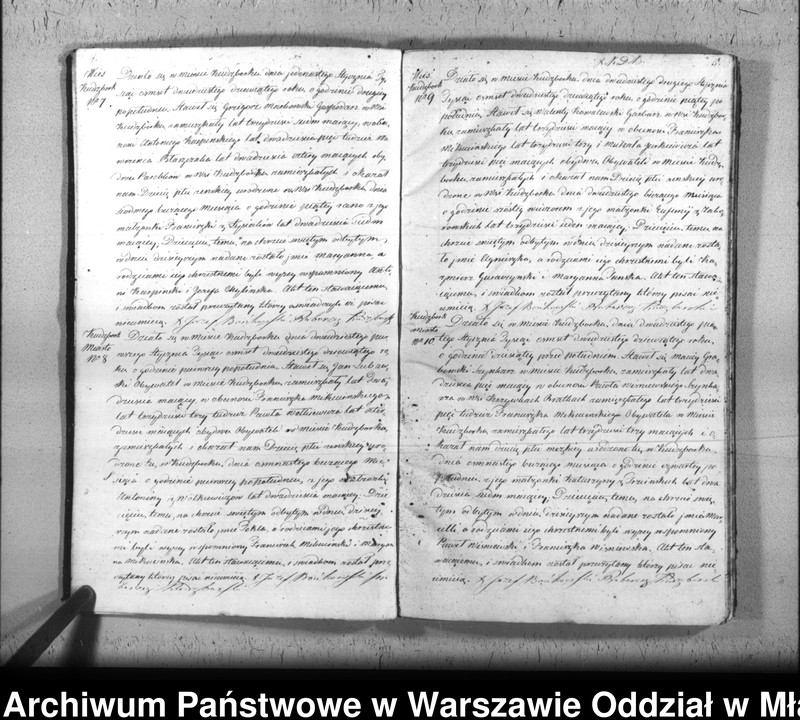 Wieś
Kuczbork
No 7.
Działo się w mieście Kuczborku dnia jedenastego Stycznia Ty-
siąc ośmset dwudziestego dziewiątego roku o godzinie drugiey
popołudniu, Stawił się Grzegorz Gospodarz w Wsi
Kuczborku zamieszkały lat trzydzieści siedm maiący, w obe-
cności Antoniego Karpińskiego lat dwadzieścia pięć tudzież
lat dwadzieścia cztery maiących oby-
dwu Parobków w Wsi Kuczborku zamieszkałych i okazał
nam Dziecię płci żeńskiey urodzone w Wsi Kuczborku dnia
siódmego bieżącego Miesiąca o godzinie piątey zrana z jego
małżonki Franciszki z lat dwadzieścia siedm
maiącey, Dziecięciu temu na chrzcie świętym odbytym
w dniu dzisieyszym nadane zostało jmie Maryanna, a
rodzicami jego chrzestnemi byli wyżey wspomniony Anto-
ni Karpiński i Józefa Akt ten stawaiącemu
i świadkom został przeczytany którzy pisać
nieumieią. X Józef Bońkowski Proboszcz Kuczborski
Kuczbork
Miasto
No 8
Działo się w mieście Kuczborku dnia dwudziestego pie-
rwszego Stycznia Tysiąc ośmset dwudziestego dziewiątego ro-
ku o godzinie pierwszey popołudniu, Stawił się Jan
Obywatel w Mieście Kuczborku zamieszkały lat
dzieścia maiący, w obecności Franciszka
lat trzydzieści trzy tudzież Pawła lat
maiących obydwu Obywateli w Mieście Kuczborku
zamieszkałych i okazał nam Dziecię płci żeńskiey uro-
dzone tu w Kuczborku, dnia ośmnastego bieżącego Mie-
siąca o godzinie pierwszey popołudniu, z jego małżonki
Antoniny z lat dwadzieścia maiącey. Dzie-
cięciu temu, na chrzcie świętym odbytym w dniu dzisiey-
szym nadane zostało jmie Tekla, a rodzicami jego chrzestne-
mi byli wyżey wspomniony Franciszek i
na Akt ten stawaiącemu, i świadkom został prze-
czytany którzy pisać nieumieią. X Józef Bońkowski Pro-
boszcz Kuczborski
5.
Wieś
Kuczbork
No 9
Działo się w mieście Kuczborku dnia dwudziestego drugiego Stycznia
Tysiąc ośmset dwudziestego dziewiątego roku o godzinie piątey po
południu, Stawił się Walenty Kowalewski w Wsi Kuczbor-
ku zamieszkały lat trzydzieści maiący w obecności Franciszka
lat trzydzieści trzy i lat
trzydzieści pięć maiących obydwu Obywateli w Mieście Kucz-
borku zamieszkałych i okazał nam Dziecię płci żeńskiey uro-
dzone w Wsi Kuczborku dnia dwudziestego bieżącego Miesiąca
o godzinie szóstey wieczorem z jego małżonki z
lat trzydzieści jeden maiącey. Dziecięciu temu na
chrzcie świętym odbytym w dniu dzisieyszym nadane zosta-
ło jmie Agnieszka, a rodzicami jego chrzestnemi byli Ka-
zimierz i Maryanna Akt ten stawa-
iącemu, i świadkom został przeczytany którzy pisać nie-
umieią. X Józef Bońkowski Proboszcz Kuczborski
Kuczbork
Miasto
No 10
Działo się w mieście Kuczborku, dnia dwudziestego pią-
tego Stycznia Tysiąc ośmset dwudziestego dziewiątego roku,
o godzinie dziesiątey przed południem Stawił się Maciey Gra-
bowski w Mieście Kuczborku, zamieszkały lat dwa-
dzieścia pięć maiący w obecności Pawła Wiśniewskiego
w Wsi zamieszkałego lat trzydzieści
pięć tudzież Franciszka Obywatela w Mieście
Kuczborku zamieszkałego lat trzydzieści trzy maiących i o-
kazał nam dziecię płci męzkiey urodzone tu w Kuczborku
dnia ośmnastego bieżącego miesiąca o godzinie czwartey po
południu, z jego małżonki Katarzyny z lat dwa-
dzieścia siedm maiącey, Dziecięciu temu, na chrzcie świę-
tym odbytym w dniu dzisieyszym nadane zostało jmie Mar-
celli a rodzicami jego chrzestnemi byli wyżey wspomniony
Paweł Wiśniewski i Franciszka Wiśniewska. Akt ten sta-
waiącemu, i świadkom został przeczytany którzy pisać nie-
umieią. X Józef Bońkowski Proboszcz Kuczborski
Archiwum Państwowe w Warszawie Oddział w Mła